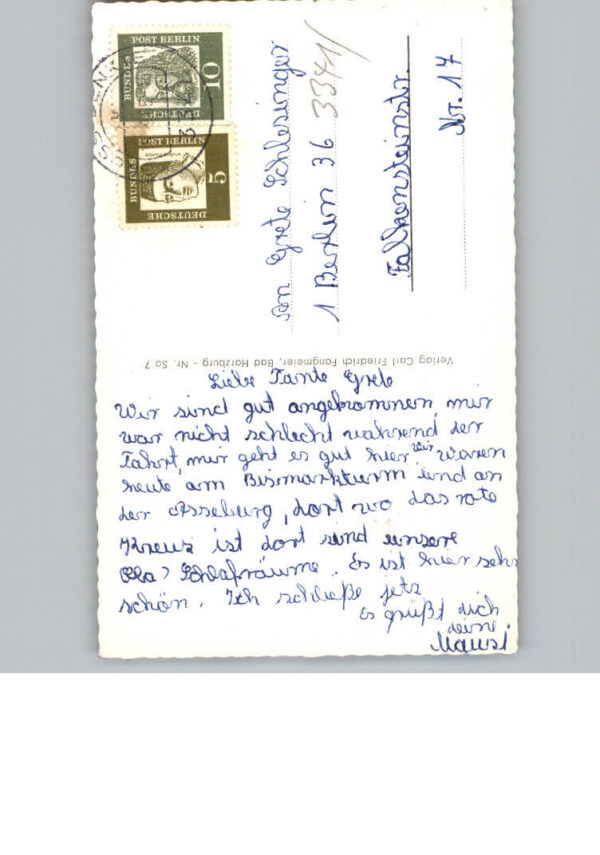 DEUTSCHE BUNDESPOST BERLIN
10
DEUTSCHE BUNDESPOST BERLIN
5
An Grete Schlesinger
1 Berlin 36 3371/
Falkensteinstr.
Nr. 17
Verlag Carl Friedrich Fangmeier, Bad Harzburg - Nr. So 7
Liebe Tante Grete
Wir sind gut angekommen, mir
war nicht schlecht während der
Fahrt, mir geht es gut hier wir waren
heute am Bismarkturm und an
der Asseburg, dort wo das rote
Kreuz ist dort sind unsere
Schlafräume. Es ist hier sehr
schön. Ich schließe jetz
Es grüßt dich
deine
Mausi